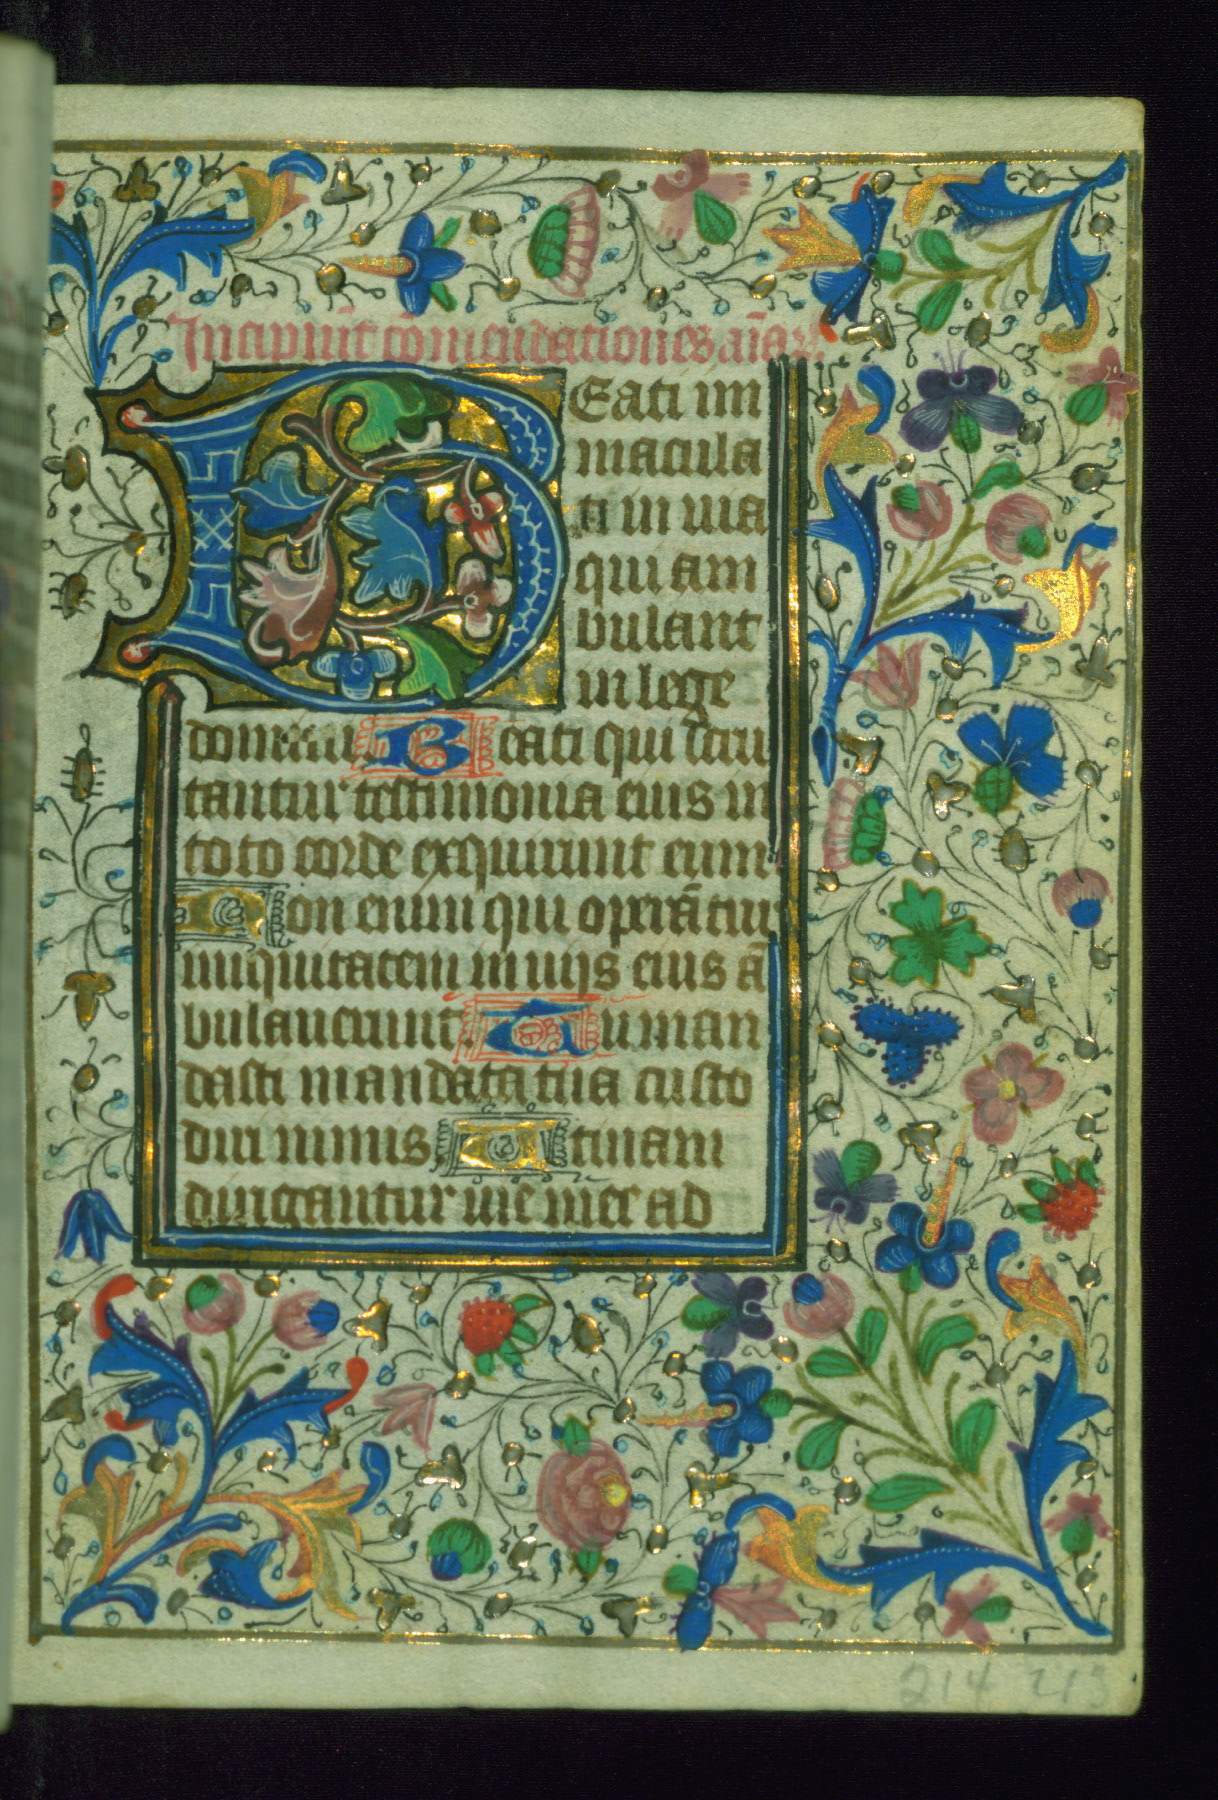 Incipiu͞t co͞mendationes a͞iar̄.
BEati im
macula
ti in uia
qui am
bulant
in lege
domini Beati qui scru
tantur testimonia eius in
toto corde exquirunt eum
Non enim qui opera͞tur
iniquitatem in uijs eius a͞
bulauerunt. Tu man
dasti mandata tua custo
diri nimis Utinam
dirigantur uie mee ad
214 213